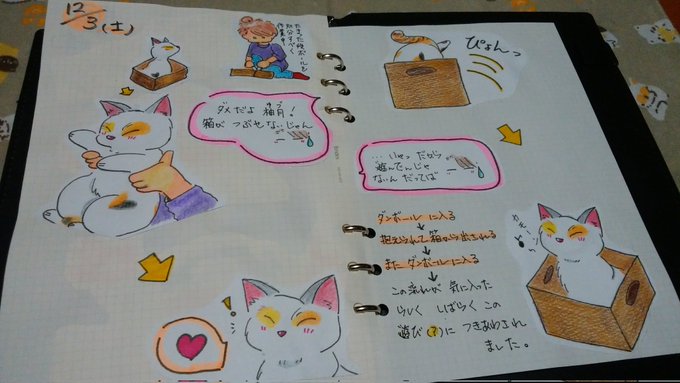 12/3(土)
たまった段ボールを
処分すべく
作業中!
ダメだよ 柚月!
箱が つぶせないじゃん
ぴょんっ
…いやっ だから
遊んでんじゃ
ないんだってば
ダンボールに入る
↓
抱えられて箱から出される
↓
また ダンボールに入る
↓
この流れが 気に入った
らしく しばらく この
遊び(?)に つきあわされ
ました。